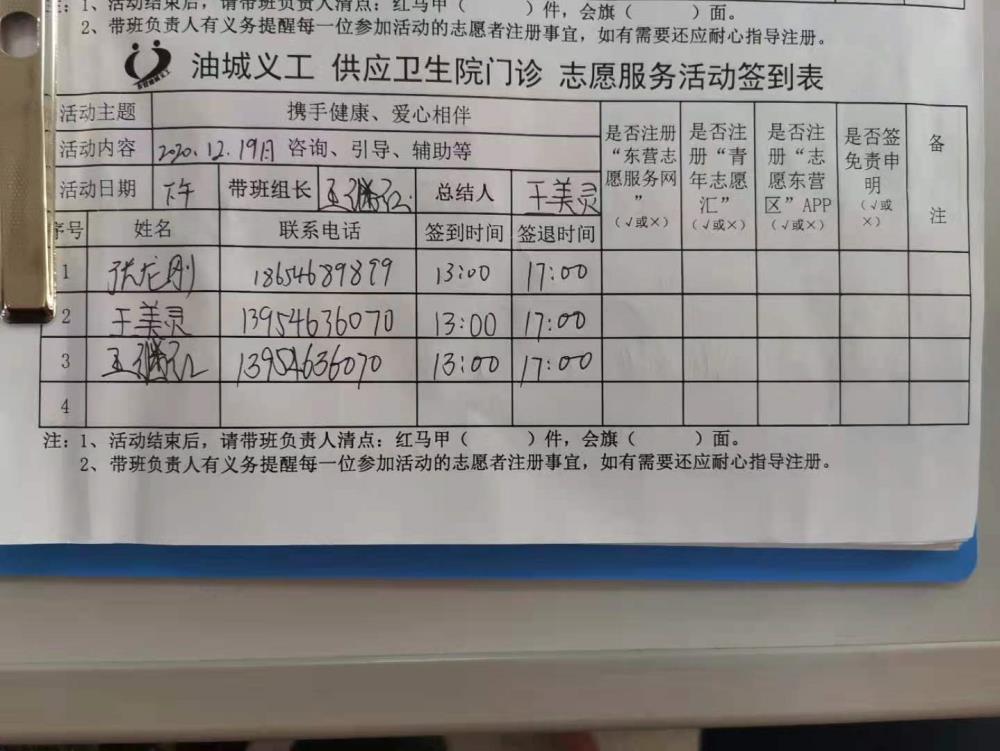 注：1、活动结束后，请带班负责人清点：红马甲（ ）件，会旗（ ）面。
2、带班负责人有义务提醒每一位参加活动的志愿者注册事宜，如有需要还应耐心指导注册。
油城义工 供应卫生院门诊 志愿服务活动签到表
活动主题 携手健康、爱心相伴 是否注册“东营志愿服务网”（√或×） 是否注册“青年志愿汇”（√或×） 是否注册“志愿东营区”APP（√或×） 是否签免责申明（√或×） 备注
活动内容 2020.12.19月 咨询、引导、辅助等
活动日期 下午 带班组长 王继红 总结人 王美灵
序号 姓名 联系电话 签到时间 签退时间
1 张龙刚 18654689899 13:00 17:00
2 王美灵 13954636070 13:00 17:00
3 王继红 13954636070 13:00 17:00
4
注：1、活动结束后，请带班负责人清点：红马甲（ ）件，会旗（ ）面。
2、带班负责人有义务提醒每一位参加活动的志愿者注册事宜，如有需要还应耐心指导注册。